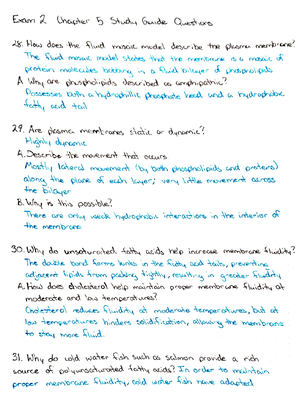 Exam 2 Chapter 5 Study Guide Questions
28. How does the fluid mosaic model describe the plasma membrane?
The fluid mosaic model states that the membrane is a mosaic of
protein molecules bobbing in a fluid bilayer of phospholipids
A. Why are phospholipids described as amphipathic?
Possesses both a hydrophillic phosphate head and a hydrophobic
fatty acid tail
29. Are plasma membranes static or dynamic?
Highly dynamic
A. Describe the movement that occurs
Mostly lateral movement (by both phospholipids and proteins)
along the plane of each layer; very little movement across
the bilayer
B. Why is this possible?
There are only weak hydrophobic interactions in the interior of
the membrane
30. Why do unsaturated fatty acids help increase membrane fluidity?
The double bond forms kinks in the fatty acid tails, preventing
adjacent lipids from packing tightly, resulting in greater fluidity
A. How does cholesterol help maintain proper membrane fluidity at
moderate and low temperatures?
Cholesterol reduces fluidity at moderate temperatures, but at
low temperatures hinders solidification, allowing the membrane
to stay more fluid.
31. Why do cold water fish such as salmon provide a rich
source of polyunsaturated fatty acids? In order to maintain
proper membrane fluidity, cold water fish have adapted